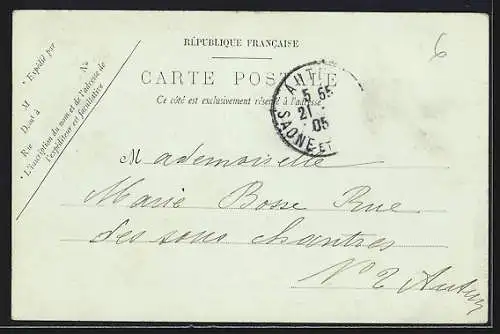 RÉPUBLIQUE FRANÇAISE
6
CARTE POSTALE
Ce côté est exclusivement réservé à l'adresse
Expédié par
M
Nº
Dem^t à
Rue
L'inscription du nom et de l'adresse de
l'expéditeur est facultative
AUTUN
5 55
21
05
SAONE-ET
Mademoiselle
Marie Bosse Rue
des sous chantres
Nº 2 Autun